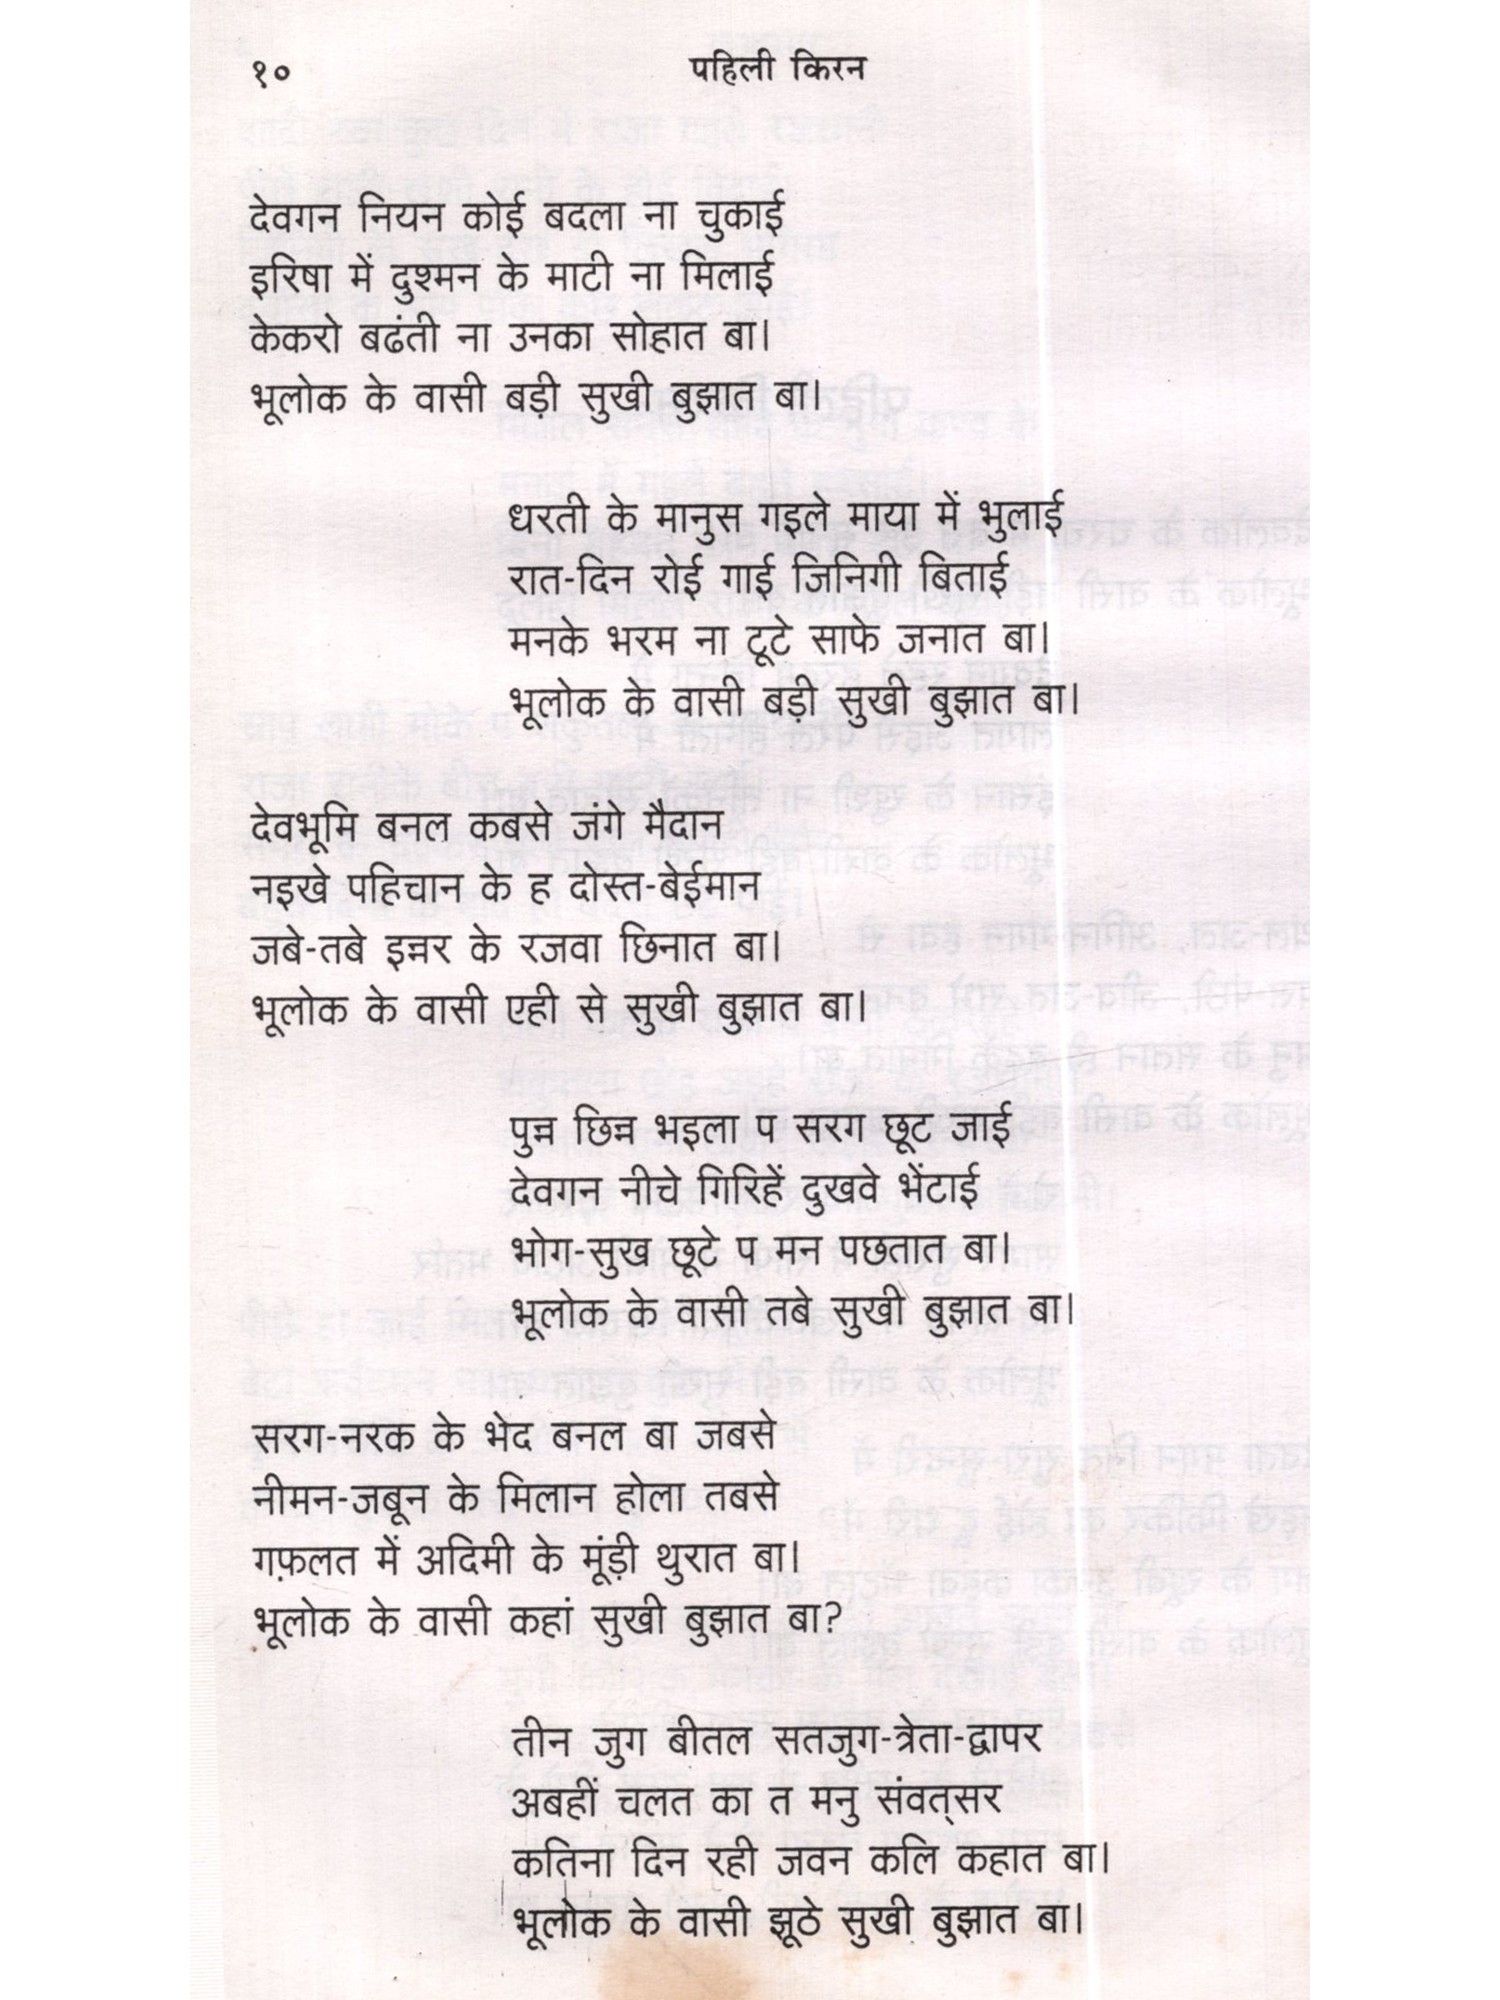 १० पहिली किरन
देवगन नियन कोई बदला ना चुकाई
इरिषा में दुश्मन के माटी ना मिलाई
केकरो बढंती ना उनका सोहात बा।
भूलोक के वासी बड़ी सुखी बुझात बा।
धरती के मानुस गइले माया में भुलाई
रात-दिन रोई गाई जिनिगी बिताई
मनके भरम ना टूटे साफे जनात बा।
भूलोक के वासी बड़ी सुखी बुझात बा।
देवभूमि बनल कबसे जंगे मैदान
नइखे पहिचान के ह दोस्त-बेईमान
जबे-तबे इन्नर के रजवा छिनात बा।
भूलोक के वासी एही से सुखी बुझात बा।
पुन्न छिन्न भइला प सरग छूट जाई
देवगन नीचे गिरिहें दुखवे भेंटाई
भोग-सुख छूटे प मन पछतात बा।
भूलोक के वासी तबे सुखी बुझात बा।
सरग-नरक के भेद बनल बा जबसे
नीमन-जबून के मिलान होला तबसे
गफ़लत में अदिमी के मूंड़ी थुरात बा।
भूलोक के वासी कहां सुखी बुझात बा?
तीन जुग बीतल सतजुग-त्रेता-द्वापर
अबहीं चलत का त मनु संवत्‌सर
कतिना दिन रही जवन कलि कहात बा।
भूलोक के वासी झूठे सुखी बुझात बा।